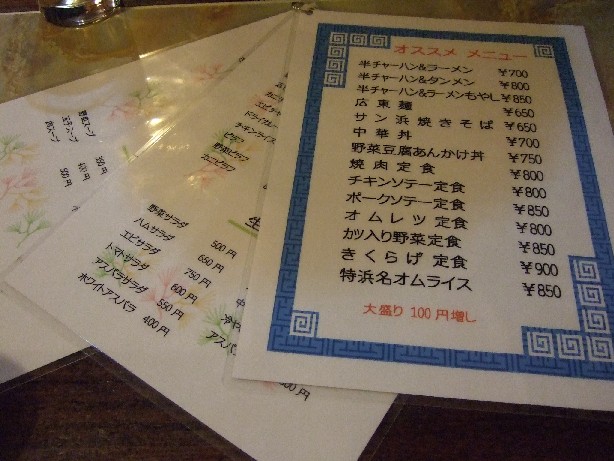 オススメ メニュー
半チャーハン&ラーメン ￥700
半チャーハン&タンメン ￥800
半チャーハン&ラーメンもやし ￥850
広東麺 ￥650
サン浜焼きそば ￥650
中華丼 ￥700
野菜豆腐あんかけ丼 ￥750
焼肉定食 ￥800
チキンソテー定食 ￥800
ポークソテー定食 ￥850
オムレツ定食 ￥800
カツ入り野菜定食 ￥850
きくらげ定食 ￥900
特浜名オムライス ￥850
大盛り 100円増し
チキンライス
ピラフ
野菜ピラフ
カニピラフ
野菜サラダ 500円
ハムサラダ 650円
エビサラダ 750円
トマトサラダ 600円
アスパラサラダ 550円
ホワイトアスパラ 400円
野菜スープ